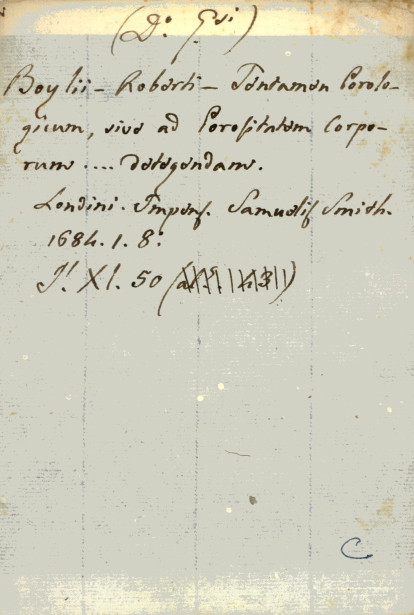 (D.º Gsi)
Boylii - Roberti - Tentamen Porolo-
gicum, sive ad Porositatem Corpo-
rum .... detegendam.
Londini. Impens. Samuelis Smith.
1684. 1. 8:
XI. 50
C